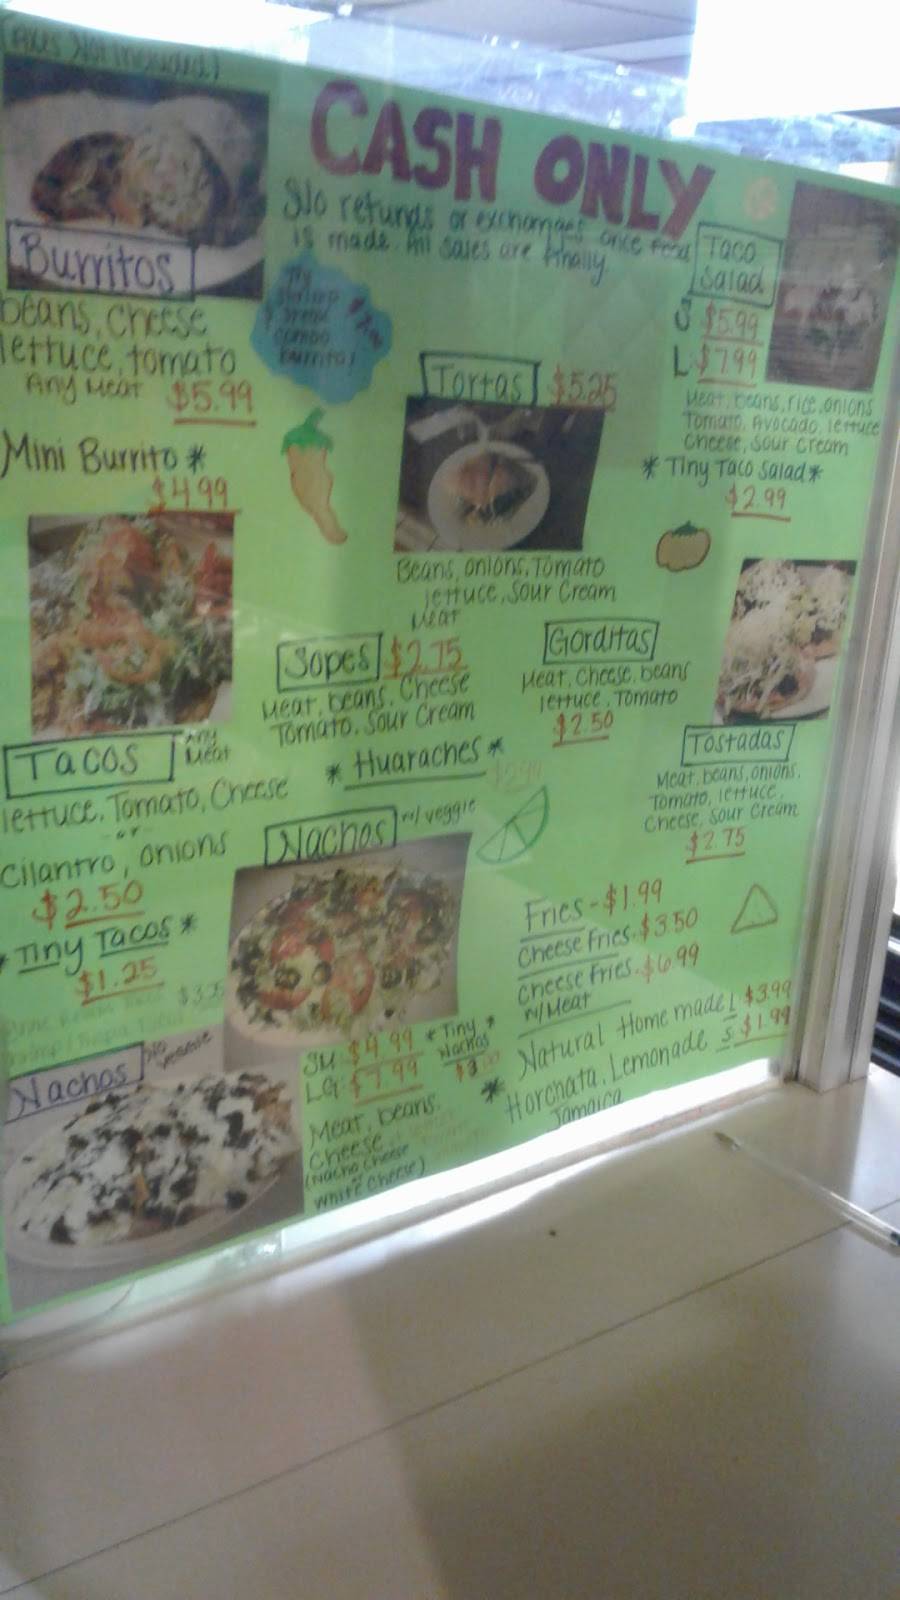 (Taxes Not Included)
CASH ONLY
No refunds or exchanges once food
is made. All sales are finally.
Burritos
beans, cheese
lettuce, tomato
Any Meat $5.99
Mini Burrito *
$4.99
Try
shrimp
& steak
combo
burrito!
Tortas $5.25
Beans, onions, Tomato
lettuce, Sour Cream
Meat
Taco
Salad
S $5.99
L $7.99
Meat, beans, rice, onions
Tomato, Avocado, lettuce
Cheese, Sour Cream
* Tiny Taco Salad *
$2.99
Sopes $2.75
Meat, beans, Cheese
Tomato, Sour Cream
* Huaraches *
Gorditas
Meat, Cheese, beans
lettuce, Tomato
$2.50
Tostadas
Meat, beans, onions,
Tomato, lettuce,
Cheese, Sour Cream
$2.75
Tacos Any
Meat
lettuce, Tomato, Cheese
or
Cilantro, onions
$2.50
* Tiny Tacos *
$1.25
Nachos w/ veggie
SM $4.99
LG $7.99
* Tiny *
Nachos
Meat, beans,
Cheese
(Nacho Cheese
White Cheese)
Nachos No
Veggie
Fries - $1.99
Cheese Fries - $3.50
Cheese Fries - $6.99
w/Meat
* Natural Home made L $3.99
Horchata, Lemonade S $1.99
Jamaica